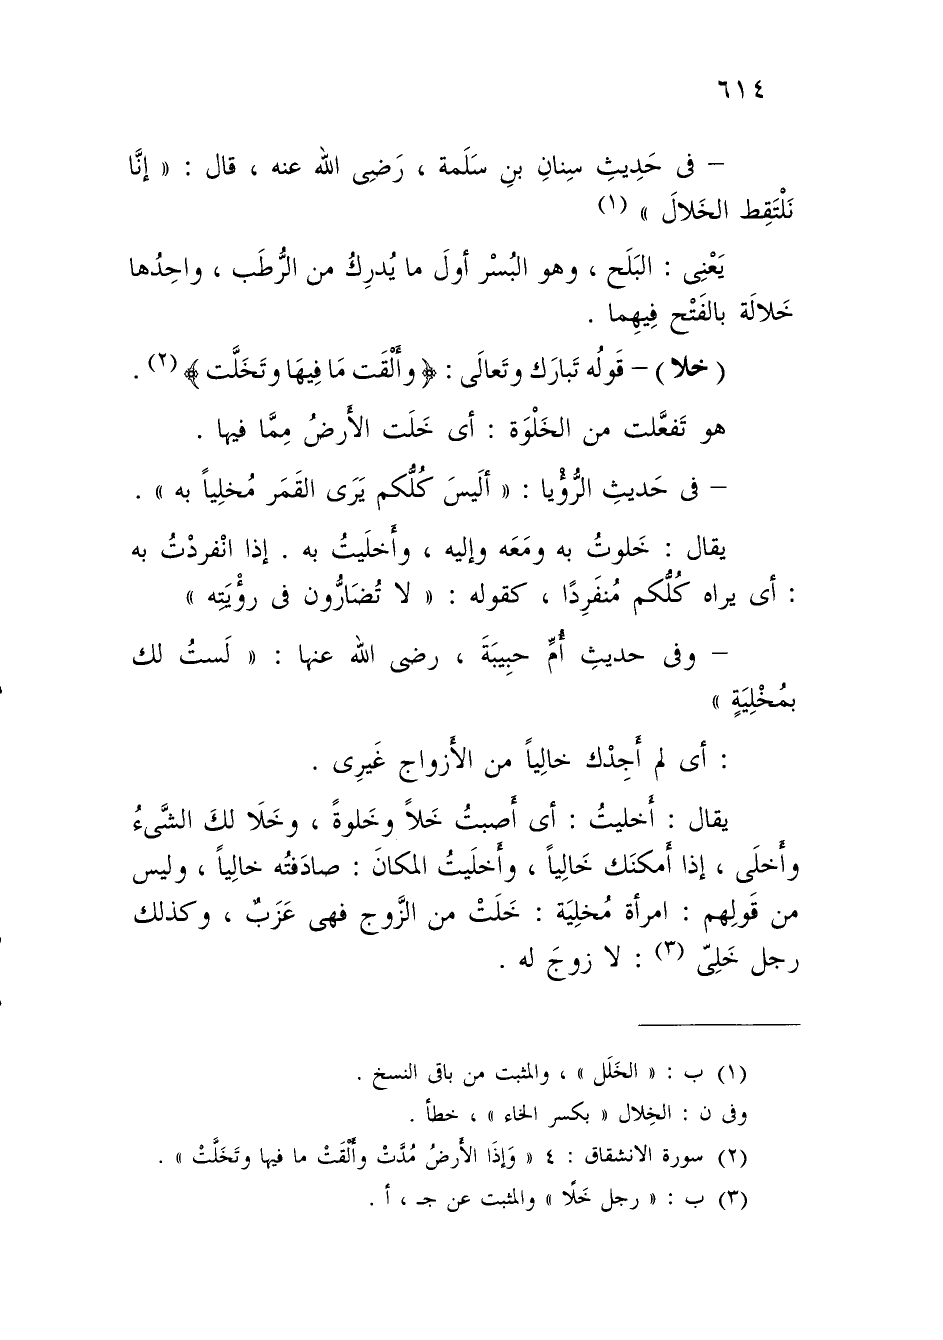 ٦١٤
– فى حَدِيثِ سِنانِ بنِ سَلَمة ، رَضِى الله عنه ، قال : « إنَّا
نَلْتَقِط الخَلالَ » (١)
يَعْنِى : البَلَح ، وهو البُسْر أولَ ما يُدرِكُ من الرُّطَب ، واحِدُها
خَلالَة بالفَتْح فِيهِما .
( خلا ) – قَولُه تَبارَك وتَعالَى : ﴿ وأَلْقَت مَا فِيهَا وتَخَلَّت ﴾ (٢) .
هو تَفعَّلت من الخَلْوَة : أى خَلَت الأَرضُ مِمَّا فيها .
– فى حَديثِ الرُّؤْيا : « ألَيسَ كُلُّكم يَرَى القَمَر مُخلِياً به » .
يقال : خَلوتُ به ومَعَه وإليه ، وأَخلَيتُ به . إذا انْفردْتُ به
: أى يراه كُلُّكم مُنفَرِدًا ، كقوله : « لا تُضَارُّون فى رؤْيَتِه »
– وفى حديثِ أُمِّ حبِيبَةَ ، رضى الله عنها : « لَستُ لك
بمُخْلِيَةٍ »
: أى لم أَجِدْك خالِياً من الأَزواج غَيرِى .
يقال : أَخليتُ : أى أَصبتُ خَلاً وخَلوةً ، وخَلَا لكَ الشَّىءُ
وأَخلَى ، إذا أَمكنَك خَالِياً ، وأَخلَيتُ المكانَ : صادَفتُه خالِياً ، وليس
من قَولِهم : امرأة مُخلِيَة : خَلَتْ من الزَّوج فهى عَزَبٌ ، وكذلك
رجل خَلِىّ (٣) : لا زوجَ له .
(١) ب : « الخَلَل » ، والمثبت من باقى النسخ .
وفى ن : الخِلال « بكسر الخاء » ، خطأ .
(٢) سورة الانشقاق : ٤ « وَإذَا الأَرضُ مُدَّتْ وأَلْقَتْ ما فيها وتَخَلَّتْ » .
(٣) ب : « رجل خَلًا » والمثبت عن جـ ، أ .